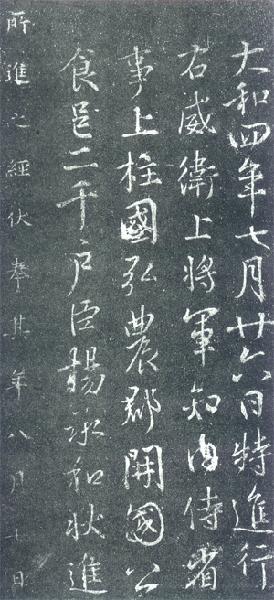 大和四年七月廿六日特進行
右威衛上將軍知內侍省
事上柱國弘農郡開國公
食邑二千戶臣楊承和狀進
所進之經伏奉其年八月七日